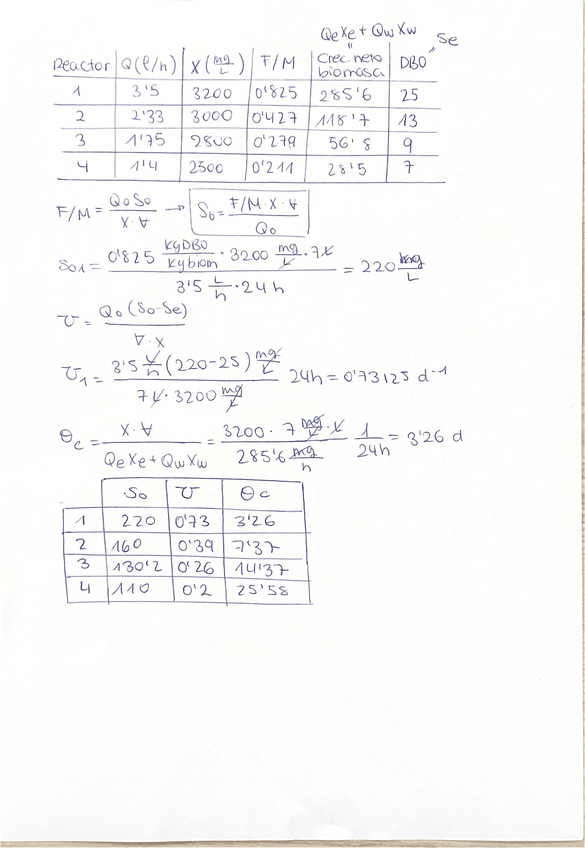 QeXe + QwXw
"
Se
Reactor Q(l/h) X(mg/L) F/M Crec. neto biomasa DBO
1 3'5 3200 0'825 285'6 25
2 2'33 3000 0'427 118'7 13
3 1'75 2800 0'279 56'8 9
4 1'4 2500 0'211 28'5 7
F/M = QoSo / X·∀ → So = F/M·X·∀ / Qo
So1 = 0'825 KgDBO/Kgbiom · 3200 mg/L · 7L / 3'5 L/h · 24h = 220 mg/L
U = Qo(So-Se) / ∀·X
U1 = 3'5 L/h (220-25) mg/L / 7L · 3200 mg/L 24h = 0'73125 d⁻¹
θc = X·∀ / QeXe + QwXw = 3200 · 7 mg/L · L / 285'6 mg/h 1/24h = 3'26 d
So U θc
1 220 0'73 3'26
2 160 0'39 7'37
3 130'2 0'26 14'37
4 110 0'2 25'58